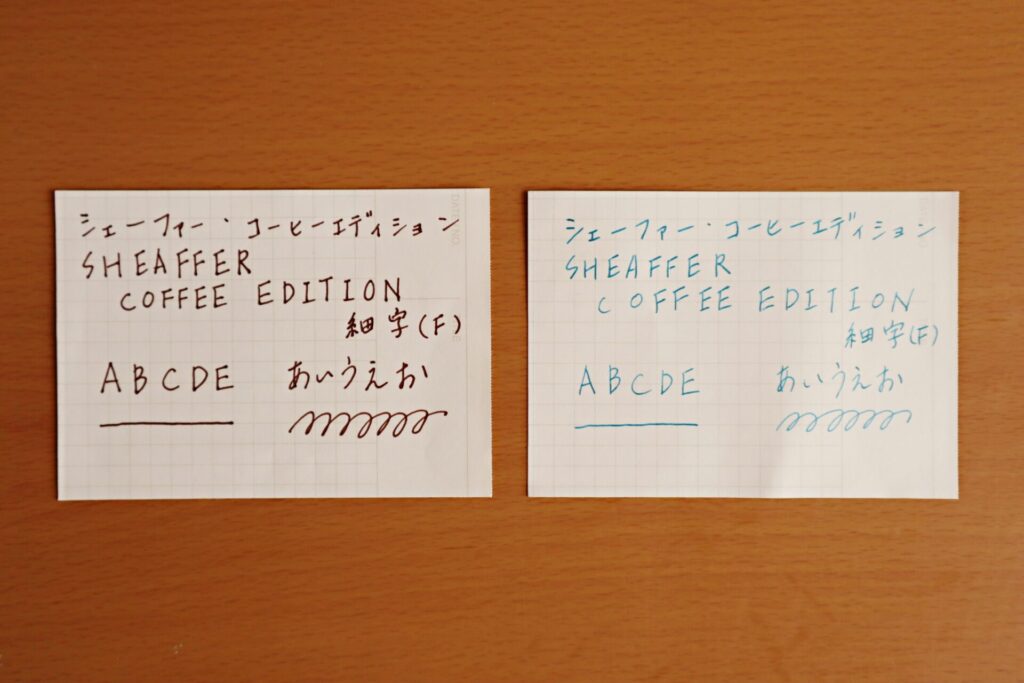 シェーファー・コーヒーエディション
SHEAFFER
COFFEE EDITION
細字(F)
ABCDE あいうえお
シェーファー・コーヒーエディション
SHEAFFER
COFFEE EDITION
細字(F)
ABCDE あいうえお